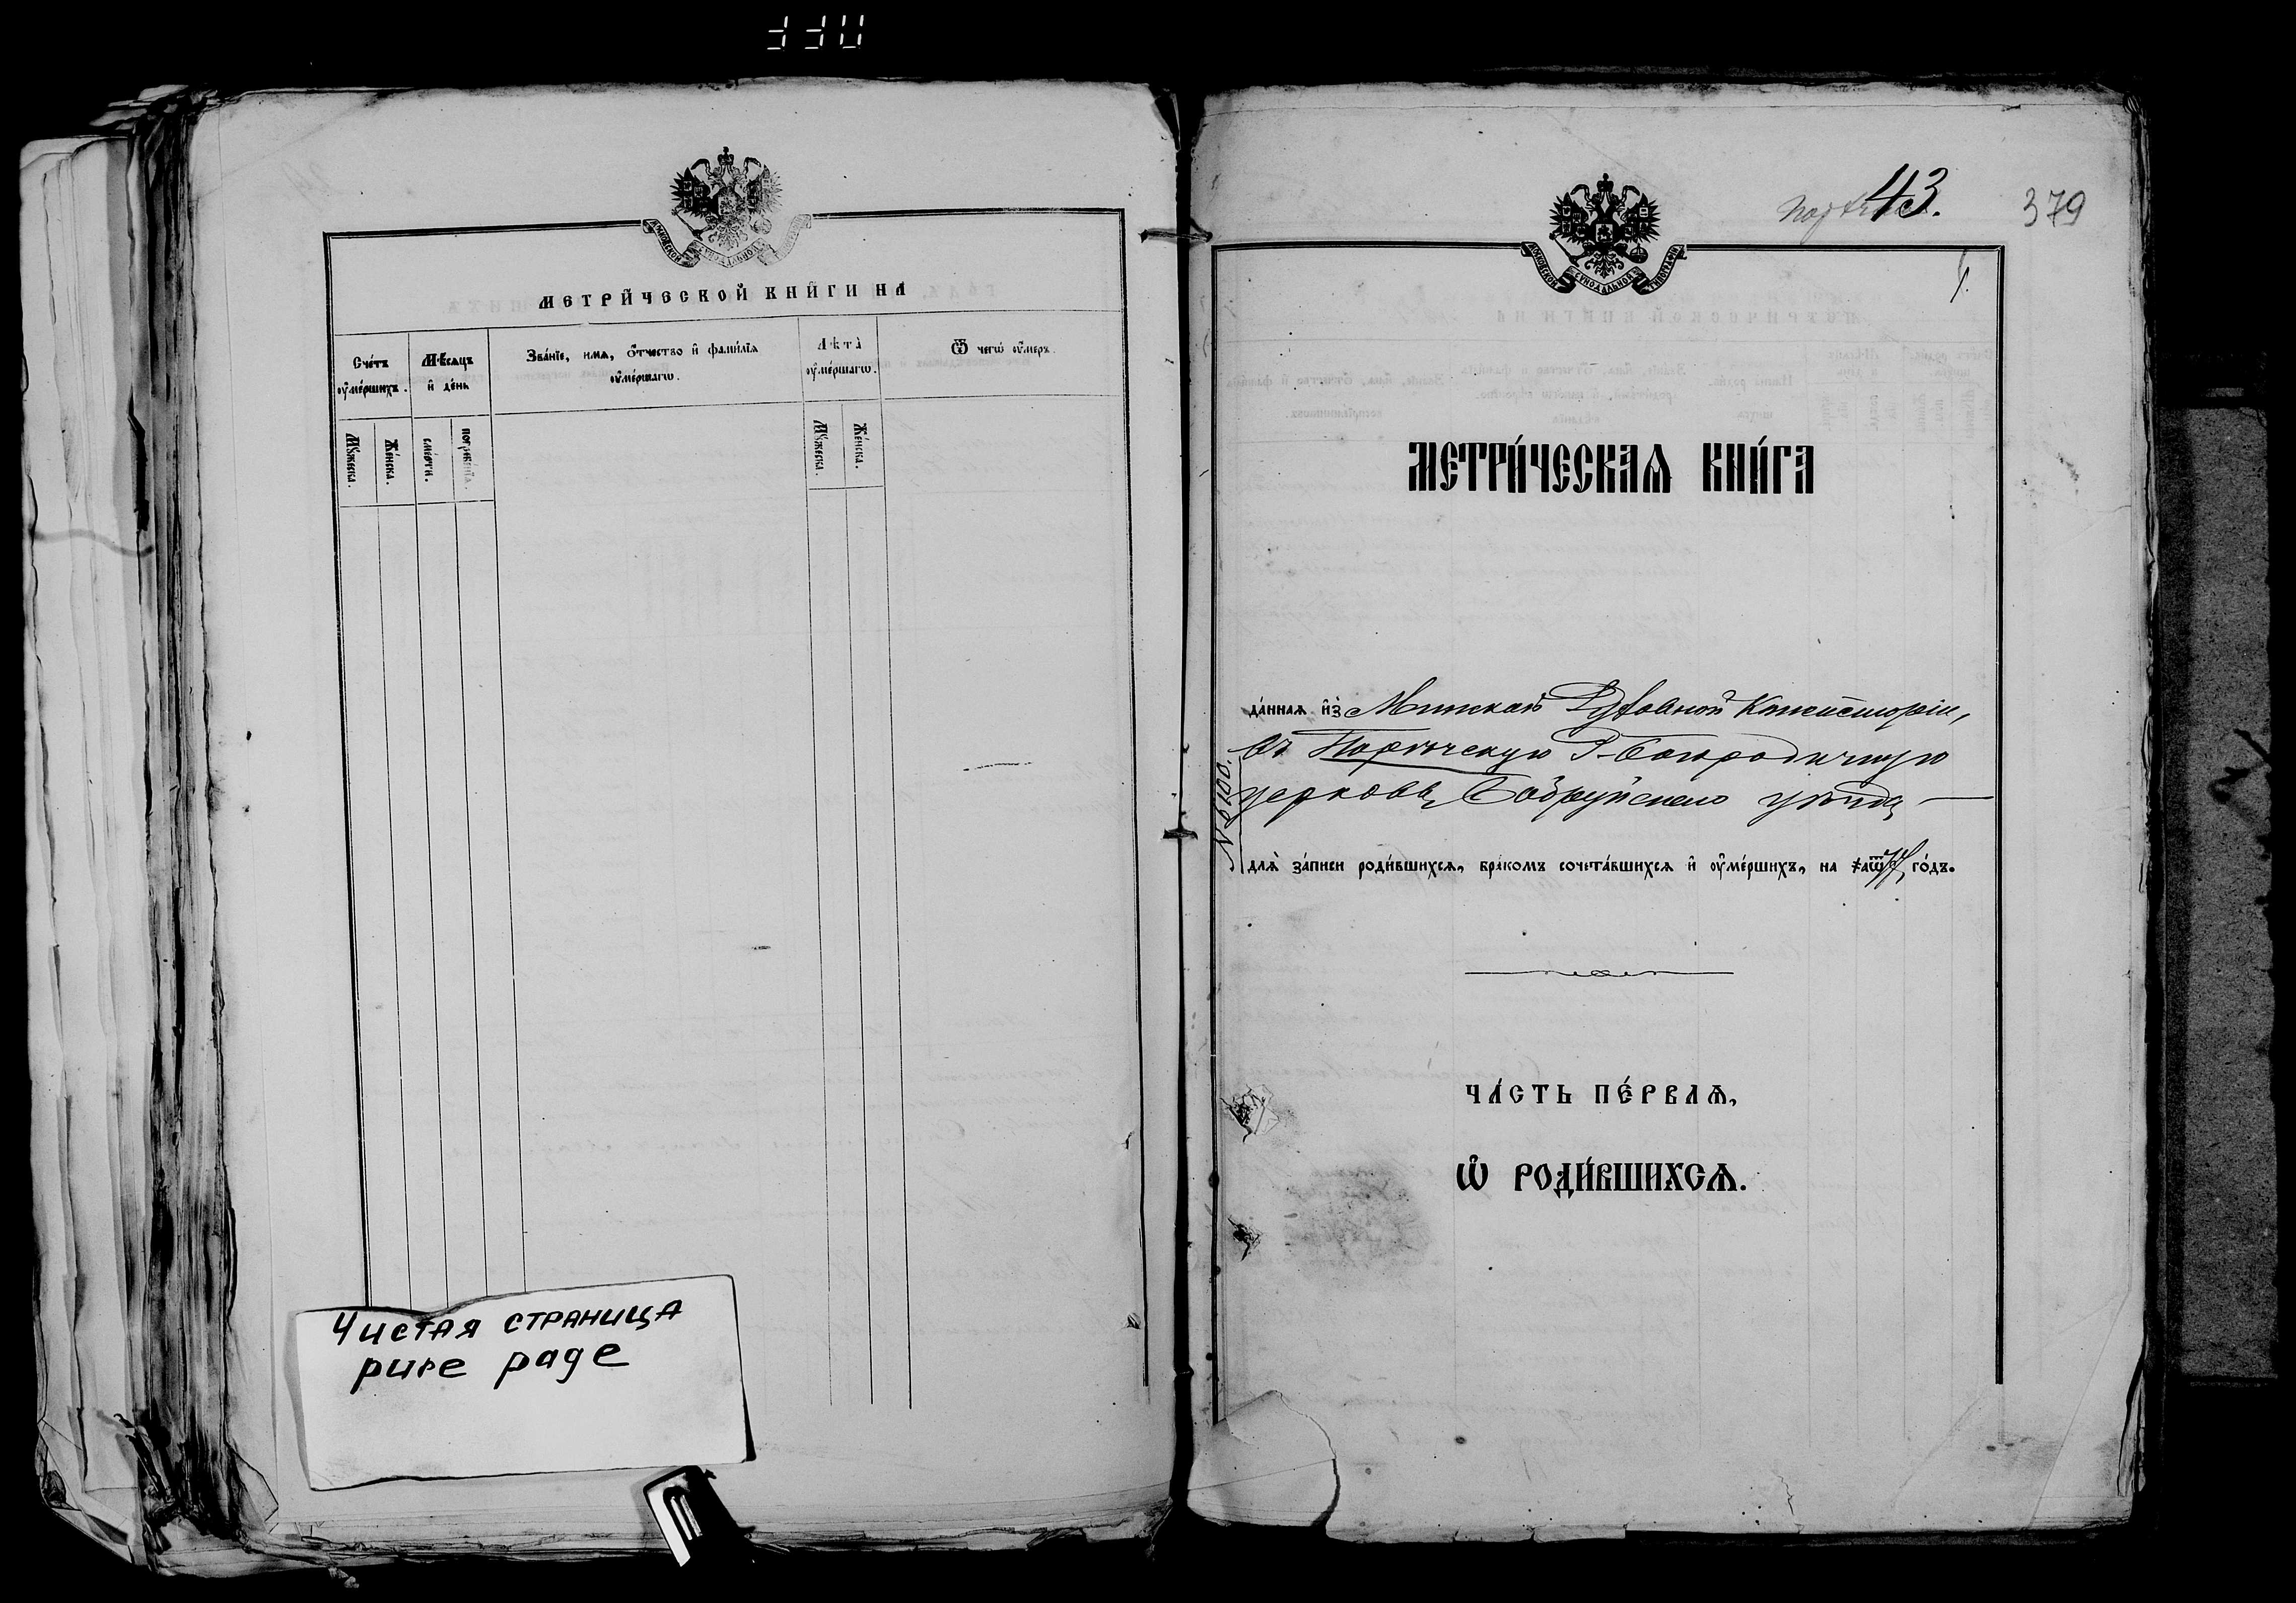 МЕТРИ́ЧЕСКОЙ КНИ́ГИ НА
Сче́тъ оу҆ме́ршихъ.
Мѣ́сяцъ и҆ де́нь
Зва́нїе, имѧ, ѻ҆́тчество и҆ фамилїѧ оу҆ме́ршагѡ.
Лѣта̀ оу҆ме́ршагѡ.
Ѿ чегѡ̀ оу҆́меръ.
Мꙋ́жеска.
Же́нска.
сме́рти.
погребе́нїѧ.
Мꙋ́жеска.
Же́нска.
Чистая страница
pure page
43.
379
1.
МОСКОВСКОЙ СѴНОДАЛЬНОЙ ТИПОГРАФІИ
МЕТРИ́ЧЕСКАѦ КНИ́ГА
да́ннаѧ и҆з̾ Минской Духовной Консисторіи,
въ Поречскую Р-Богородичную
церковь, Бобруйскаго уѣзда
№ 6100.
длѧ̀ за́писи роди́вшихсѧ, бракомъ сочета́вшихсѧ и҆ оу҆ме́ршихъ, на ҂аѿ го́дъ.
ЧА́СТЬ ПЕ́РВАѦ,
Ѽ РОДИ́ВШИХСѦ.